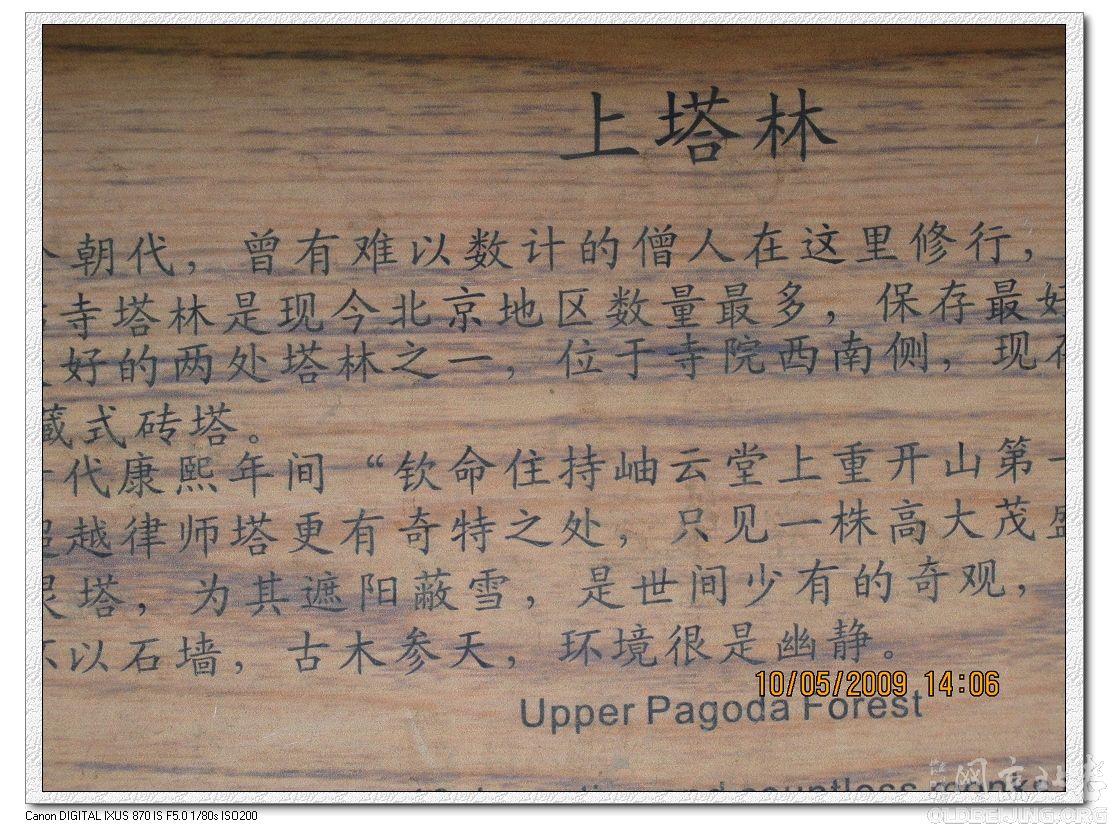 上塔林
朝代，曾有难以数计的僧人在这里修行，
寺塔林是现今北京地区数量最多，保存最好
好的两处塔林之一，位于寺院西南侧，现存
藏式砖塔。
代康熙年间“钦命住持岫云堂上重开山第一
超越律师塔更有奇特之处，只见一株高大茂盛
灵塔，为其遮阳蔽雪，是世间少有的奇观，
以石墙，古木参天，环境很是幽静。
10/05/2009 14:06
Upper Pagoda Forest
and countless monks
老北京网
OLDBEIJING.ORG
Canon DIGITAL IXUS 870 IS F5.0 1/80s ISO200